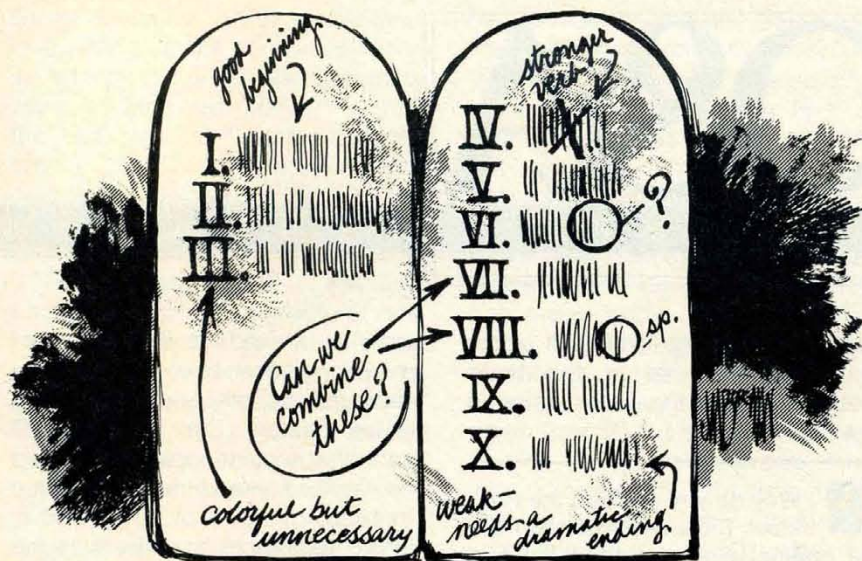 good
beginning.
I.
II.
III.
Can we
combine
these?
colorful but
unnecessary
stronger
verb
IV.
V.
VI.
?
VII.
VIII.
sp.
IX.
X.
weak—
needs a
dramatic
ending.